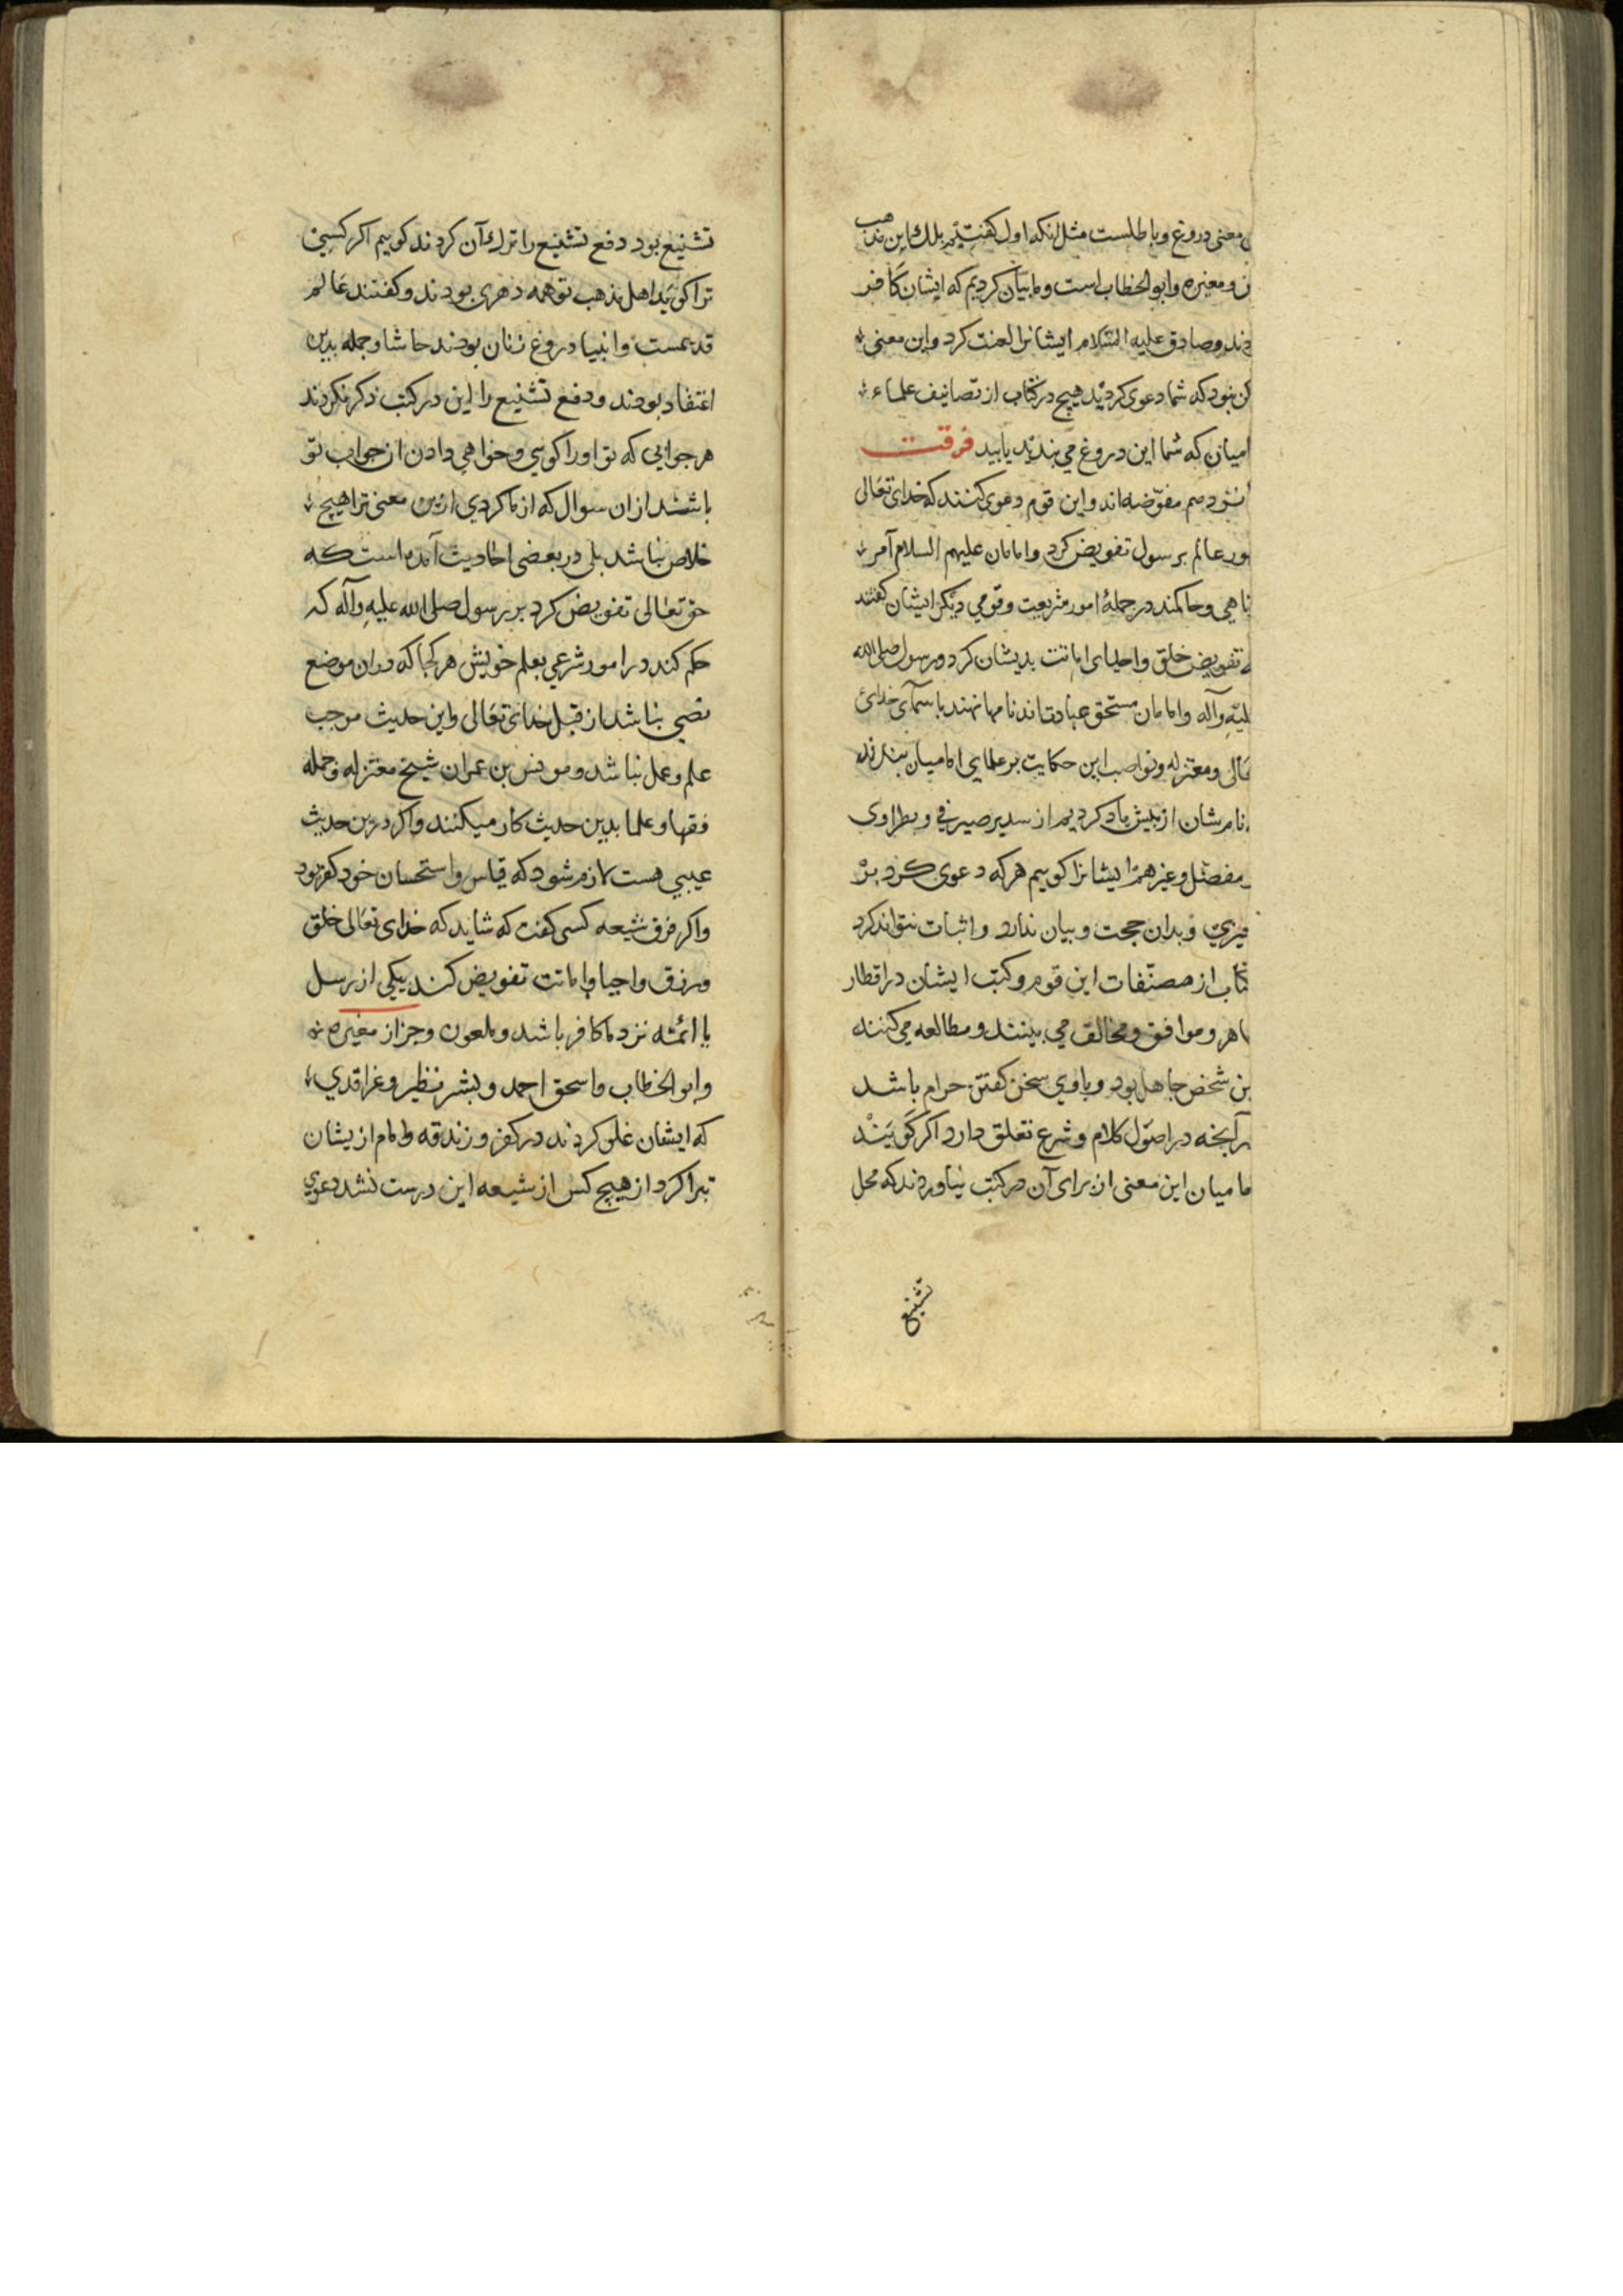 معنی دروغ و باطلست مثل انکه اول کفتیم بلک این مذهب
و مغیره و ابو الخطاب است و ما بیان کردیم که ایشان کافر
و صادق علیه السّلام ایشانرا لعنت کرد و این معنی
نبود که شما دعوی کردید هیچ در کتاب از تصانیف علماء
امیان که شما این دروغ می بندید یابید فرقت
مفوّضه اند و این قوم دعوی کنند که خدای تعالی
عالم بر رسول تفویض کرد و امامان علیهم السلام آمر
ناهی و حاکمند در جملهٔ امور شریعت و قومی دیگر ازیشان کفتند
تفویض خلق و احیا و اماتت بدیشان کرد و رسول صلی الله
علیه و آله و امامان مستحق عبادت اند نامها نهند باسمای خدای
و معتزله و نواصب این حکایت بر علمای امامیان بندند
نام شان از پیش یاد کردیم از سدیر صیرفی و بطراوی
مفصّل و غیرهم ایشانرا کوییم هر که دعوی کرد بر
و بدان حجت و بیان ندارد و اثبات نتواند کرد
کتاب از مصنّفات این قوم و کتب ایشان در اقطار
ظاهر و موافق و مخالف می بینند و مطالعه می کنند
این شخص جاهل بود و با وی سخن کفتن حرام باشد
آنچه در اصول کلام و شرع تعلق دارد اکر کویند
امامیان این معنی از برای آن در کتب نیاوردند که محل
تشنیع
تشنیع بود دفع تشنیع را ترك آن کردند کوییم اکر کسی
ترا کوید اهل مذهب تو همه دهری بودند و کفتند عالم
قدیمست و انبیا دروغ زنان بودند حاشا و جمله بدین
اعتقاد بودند و دفع تشنیع را این در کتب ذکر نکردند
هر جوابی که تو او را کویی و خواهی دادن آن جواب تو
باشد از ان سوال که از ما کردی ازین معنی ترا هیچ
خلاص نباشد بلی در بعضی احادیث آمده است که
حق تعالی تفویض کرد بر رسول صلی الله علیه و آله که
حکم کند در امور شرعی بعلم خویش هر کجا که در ان موضع
نصی نباشد از قبل خدای تعالی و این حدیث موجب
علم و عمل نباشد و مونس بن عمران شیخ معتزله و جمله
فقها و علما بدین حدیث کار میکنند و اکر درین حدیث
عیبی هست لازم شود که قیاس و استحسان خود کفر بود
و اکر فرق شیعه کسی کفت که شاید که خدای تعالی خلق
و رزق و احیا و اماتت تفویض کند بیکی از رسل
یا ائمّه نزد ما کافر باشد و ملعون و جز از مغیره
و ابو الخطاب و اسحق احمد و بشر
که ایشان غلو کردند در کفر و زندقه و امام ازیشان
تبرا کرد از هیچ کس از شیعه این درست نشد دعوی